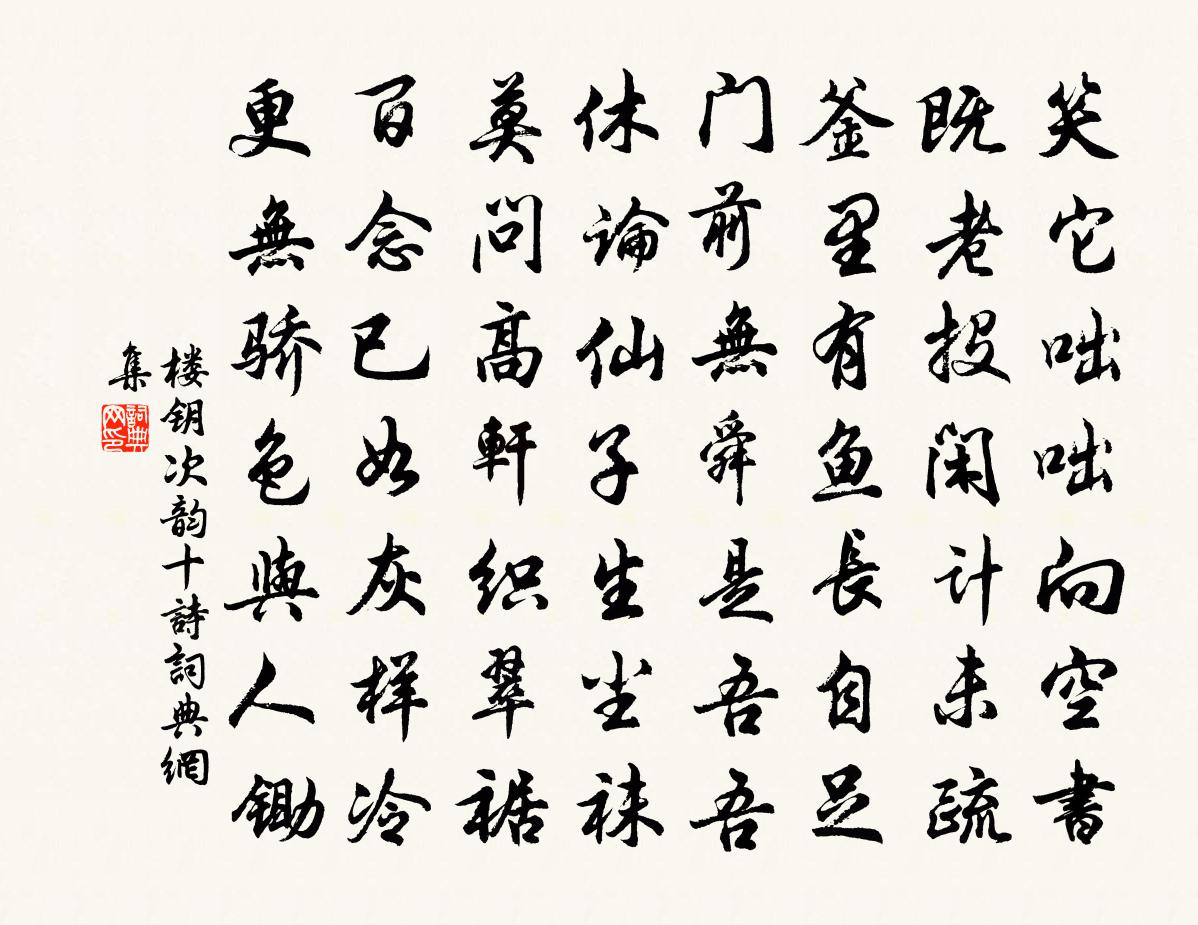 笑它咄咄向空書
既老投闲计未疏
釜里有鱼長自足
门前無舜是吾吾
休論仙子生尘袜
莫问高軒织翠裾
百念已如灰样冷
更無骄色與人锄
楼钥次韵十詩詞典網
集
詞典网印